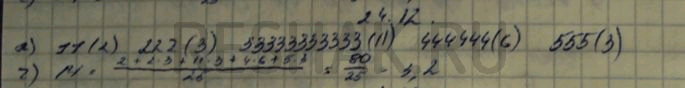 24.12.
а) 11(2) 222(3) 33333333333(11) 444444(6) 555(3)
г) M = (2 + 2·3 + 11·3 + 4·6 + 5·3)/25 = 80/25 = 3,2
RESHAK.RU